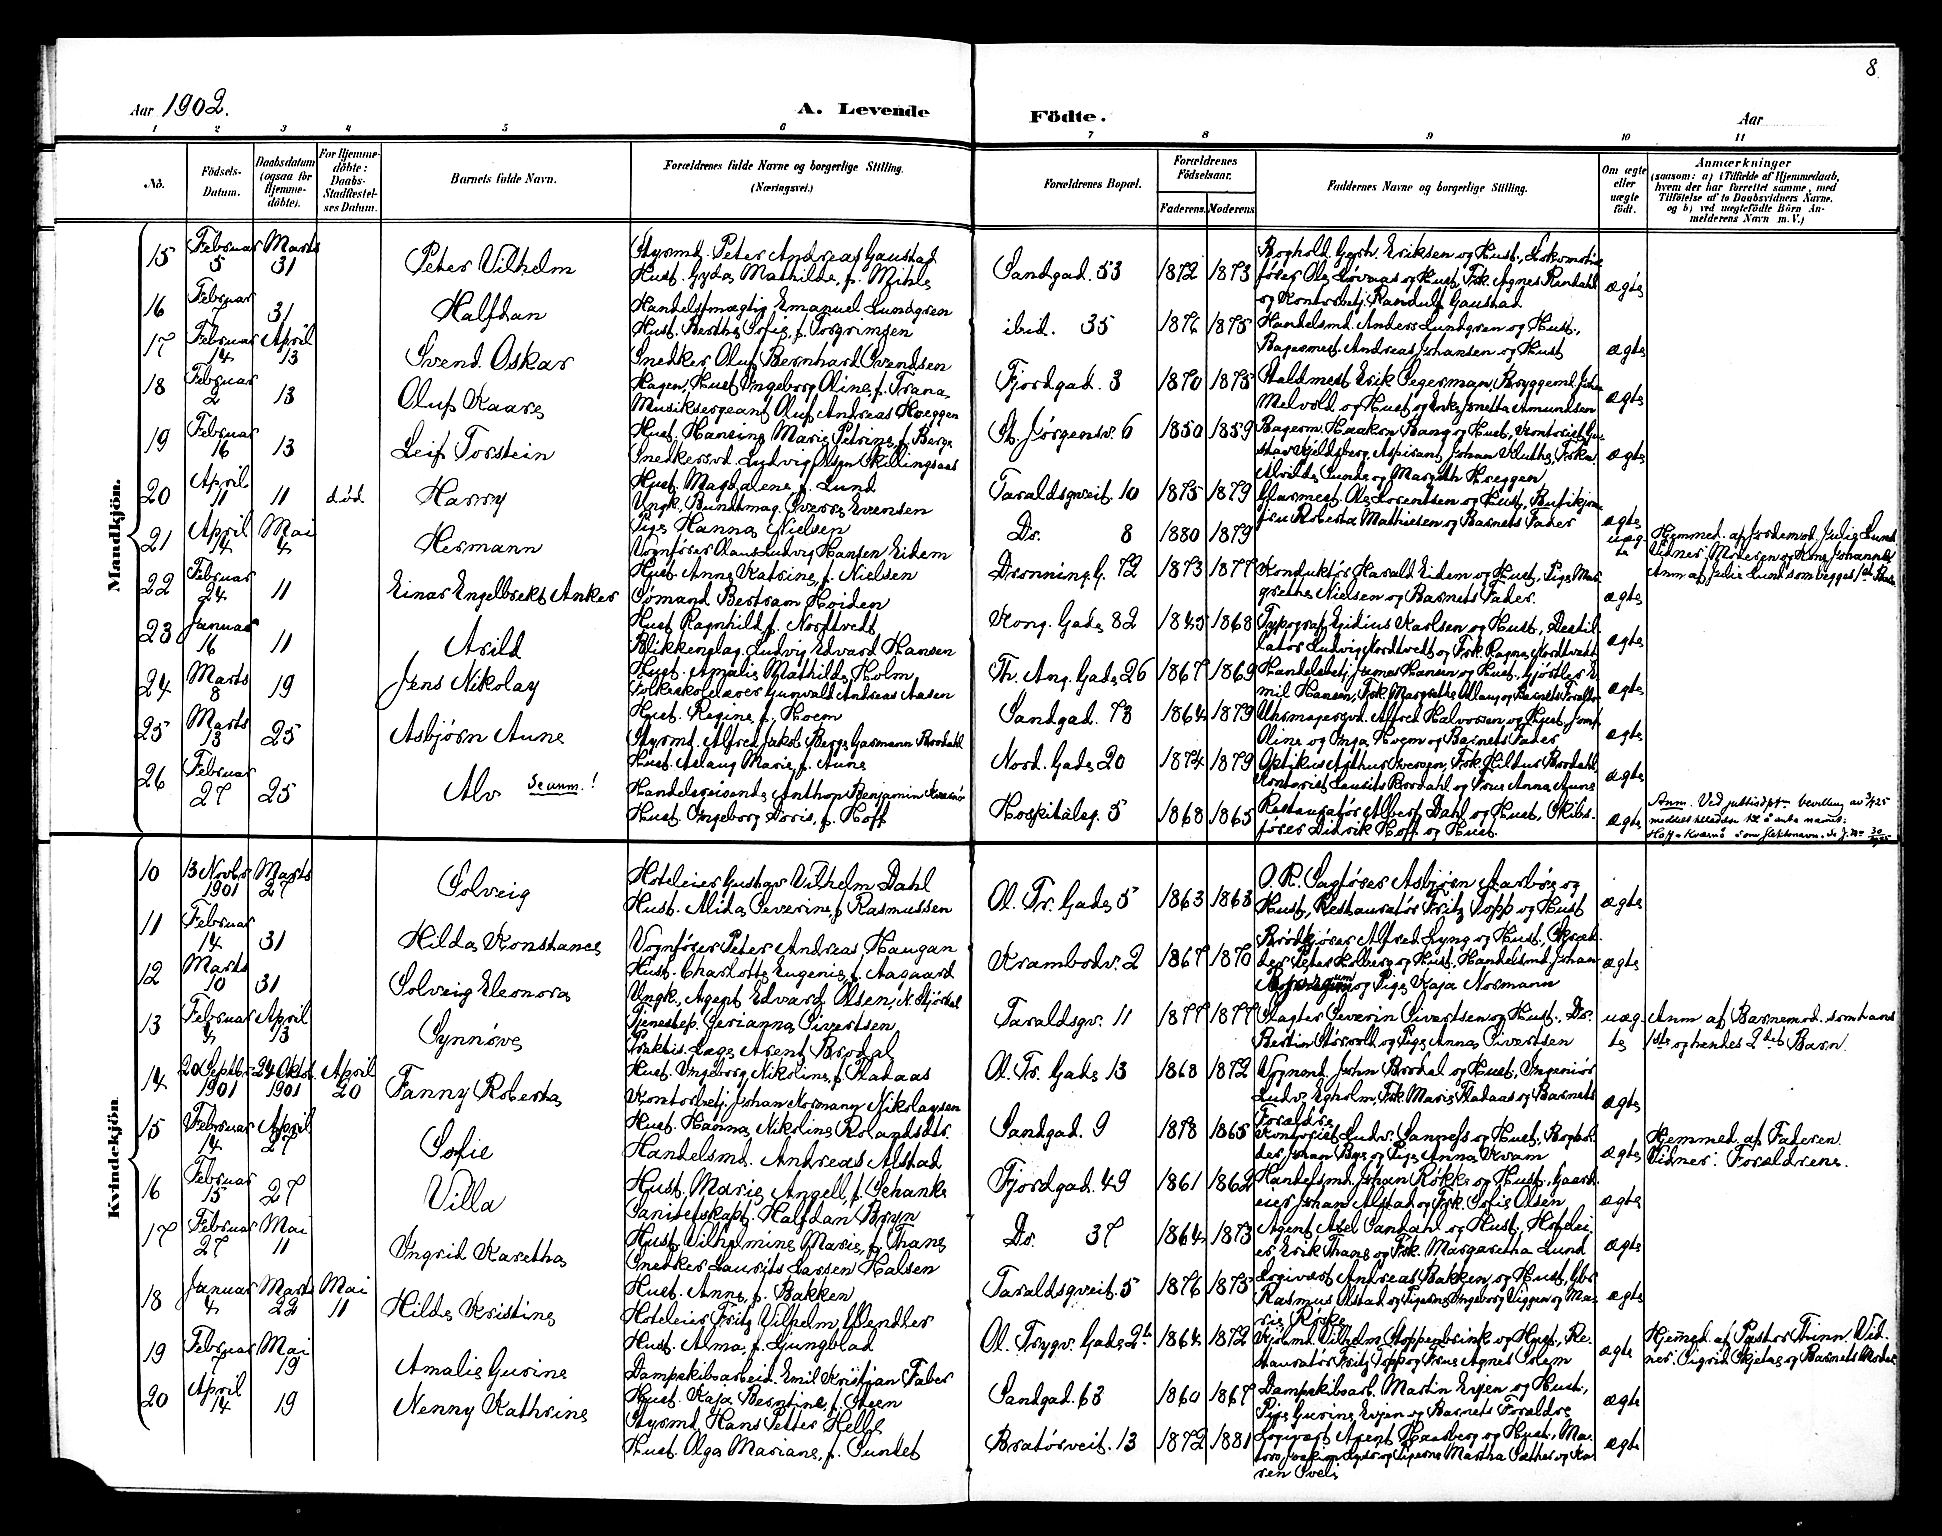 8
Aar 1902.
A. Levende Födte.
Aar
1 2 3 4 5 6 7 8 9 10 11
No.
Födsels-Datum.
Daabsdatum (ogsaa för Hjemme-döbte).
For Hjemme-döbte: Daabs-Stadfæstel-ses Datum.
Barnets fulde Navn.
Forældrenes fulde Navne og borgerlige Stilling. (Næringsvei.)
Forældrenes Bopæl.
Forældrenes Födselsaar.
Faderens. Moderens.
Faddernes Navne og borgerlige Stilling.
Om ægte eller uægte födt.
Anmærkninger
(saasom: a) i Tilfælde af Hjemmedaab,
hvem der har forrettet samme, med
Tilföielse af to Daabsvidners Navne.
og b) ved uægtefödte Börn An-
melderens Navn m. V.)
Mandkjön.
15 Februar 5 Marts 31 Peter Vilhelm
Styrmd. Peter Andreas Gaustad
Hust. Gyda Mathilde, f. Mihle
Sandgad. 53 1872 1873
Boghold. Gerh. Eriksen og Hust., Lokomotiv-
fører Ole Løvaas og Hust, Frk. Agnes Randahl
og Kontorbetj. Randulf Gaustad
ægte
16 Februar 7 31 Halfdan
Handelsfmægtig Emanuel Lundgren
Hust. Berthe Sofie, f. Torgrimsen
ibid. 35 1876 1875
Handelsmd. Anders Lundgren og Hust.,
Bagermest. Andreas Johansen og Hust
ægte
17 Februar 14 April 13 Svend Oskar
Snedker Oluf Bernhard Svendsen
Hagen, Hust Ingeborg Oline, f. Trana
Fjordgad. 3 1870 1875
Staldmest Erik Segerman, Bryggemd. Johan
Melvold og Hust og Enke Jonetta Amundsen
ægte
18 Februar 2 13 Oluf Kaare
Musiksergeant Oluf Andreas Hveggen
Hust. Hansine Marie Petrine, f. Berge
St. Jørgensv. 6 1850 1859
Bagerm. Haakon Bang og Hust, Kontorist Gu-
stav Kjeldsberg, Aspirant Johan Kluthe, Frkn.
Alvilde Sunde og Margith Hveggen
ægte
19 Februar 16 13 Leif Torstein
Snedkersvd. Ludvig Olsen Skillingsaas
Hust. Magdalene, f. Lund
Taraldsgveit. 10 1875 1879
Glarmest. Ole Lorentsen og Hust, Butikjom-
fru Roberta Mathiesen og Barnets Fader
ægte
20 April 11 11 død Harry
Ungk. Bundtmag. Sverre Evensen
Pige Hanna Nielsen
Do. 8 1880 1879
uæg-te
Hjemmed. af Jordemod. Julie Lund
Vidner: Moderen og Kone Johanne
Anm af Julie Lund som begges 1ste Barn
21 April 14 Mai 4 Hermann
Vognfører Olaus Ludvig Hansen Eidem
Hust Anne Katrine, f. Nielsen
Dronning. G. 72 1873 1877
Konduktør Harald Eidem og Hust, Pige Mar-
grethe Nielsen og Barnets Fader.
ægte
22 Februar 24 11 Einar Engelbrekt Anker
Sømand Bertram Hoiden
Hust Ragnhild f. Nordtvedt
Kong. Gade 82 1845 1868
Typograf Egidius Karlsen og Hust, Destil-
latør Ludvig Nordtvedt og Frk. Ragna Nordtvedt
ægte
23 Januar 16 11 Arild
Blikkenslag. Ludvig Edvard Hansen
Hust. Amalie Mathilde, Holm
Th. Ang. Gade 26 1867 1869
Handelsbetj. James Hansen og Hust, Gjørtler E-
mil Hansen, Frk. Margrethe Allaug og Barnets Foræld.
ægte
24 Marts 8 19 Jens Nikolay
Folkeskolelærer Gunvald Andreas Aasen
Hust. Regine, f. Hoem
Sandgad. 73 1864 1879
Uhrmagersvd. Alfred Halvorsen og Hust, Jomf
Oline og Inga Hoem og Barnets Fader
ægte
25 Marts 13 25 Asbjørn Aune
Styrmd. Alfred Jakob Berge Garmann Brodahl
Hust. Aslaug Marie, f. Aune
Nord. Gade 20 1874 1879
Optikus Arthur Iversen, Frk. Hildur Brodahl,
Kontorist Laurits Brodahl og Frue Anna Aune
ægte
26 Februar 27 25 Alv Se anm.!
Handelsreisende Anthon Benjamin Kværnø
Hust. Ingeborg Doris, f. Hoff
Hospitalsg. 5 1868 1865
Restauratør Albert Dahl og Hust, Skibs-
fører Didrik Hoff og Hust.
ægte
Anm. Ved justisdptm bevilling av 3/7 25
meddelt tilladelse til å anta navnet:
Hoff-Kværnø som slektsnavn.
Kvindekjön.
10 13 Novbr 1901 Marts 27 Solveig
Hoteleier Gustav Vilhelm Dahl
Hust. Alida Severine, f. Rasmussen
Ol. Tr. Gade 5 1863 1863
O. R. Sagfører Asbjørn Aarbøe og
Hust, Restauratør Fritz Topp og Hust
ægte
11 Februar 14 31 Hilda Konstance
Vognfører Peter Andreas Haugan
Hust. Charlotte Eugenie, f. Aagaard
Krambodv. 2 1867 1870
Brødkjører Alfred Lyng og Hust, Skræd-
der Peter Holberg og Hust. Handelsmd. Johan
og Pige Kaja Normann
ægte
12 Marts 10 31 Solveig Eleonora
Ungk., Agent Edvard Olsen, N. Stjørdal
Tjenestep. Gerianna Sivertsen
Taraldsgv. 11 1877 1877
Slagter Severin Sivertsen og Hust. Do.
Bertin Størvold og Pige Anna Sivertsen
uæg-te
Anm af Barnemod. som hans
1ste og hendes 2det Barn.
13 Februar 4 April 13 Synnøve
Praktis. Læge Arent Brodal
Hust Ingeborg Nikoline, f. Fladaas
Ol. Tr. Gade 13 1868 1872
Vognmd. John Brodal og Hust, Ingeniør
Ludv. Egholm, Frk. Marie Fladaas og Barnets
Forældre
ægte
14 20 Septbr. 1901 24 Oktbr. 1901 April 20 Fanny Roberta
Kontorbetj. Johan Normann Nikolaysen
Hust. Hanna Nikoline Rolandsdtr.
Sandgad. 9 1878 1865
Kontorist Ludv. Sanness og Hust, Bogbin-
der Johan Bye og Pige Anna Kvam
ægte
Hjemmed. af Faderen.
Vidner: Forældrene.
15 Februar 14 April 27 Sofie
Handelsmd. Andreas Alstad
Hust. Marie Angell, f. Schanke
Fjordgad. 49 1861 1862
Handelsmd. Johan Røkke og Hust, Gaard-
eier Johan Alstad og Frk. Sofie Olsen
ægte
16 Februar 15 27 Villa
Sanitetskapt. Halfdan Bryn
Hust Vilhelmine Marie, f. Thane
Do. 37 1864 1873
Agent Axel Sandahl og Hust. Hotelei-
er Erik Thane og Frk. Margaretha Lund
ægte
17 Februar 27 Mai 11 Ingrid Karetha
Snedker Laurits Larsen Halsen
Hust. Anne, f. Bakken
Taraldsgveit. 5 1876 1875
Logivært Andreas Bakken og Hust, Gbr
Rasmus Olstad og Pigerne Ingeborg Viggen og Ma-
rie Røkke
ægte
18 Januar 4 Marts 22 Mai 11 Hilda Kristine
Hoteleier Fritz Vilhelm Wendler
Hust. Alma, f. Ljungblad
Ol. Trygv. Gade 24 1864 1872
Kjøbmd. Vilhelm Stoppenbrink og Hust, Re-
stauratør Fritz Topp og Frue Agnes Solem
ægte
Hjemed. af Pastor Finn. Vid-
ner: Sigrid Skjetne og Barnets Moder
19 Februar 7 Mai 19 Amalie Gurine
Dampskibsarbeid. Emil Kristjan Faber
Hust. Kaja Berntine, f. Steen
Sandgad. 63 1860 1867
Dampskibsarb. Martin Evjen og Hust,
Pige Gurine Evjen og Barnets Forældre
ægte
20 April 14 19 Nenny Kathrine
Styrmd. Hans Petter Helle
Hust. Olga Mariane, f. Sundet
Bratørveit. 13 1872 1881
Logivært Agent Haarberg og Hust, Ma-
tros Joakim Lyder og Pigerne Martha Sæther og Ka-
ren Sveli
ægte